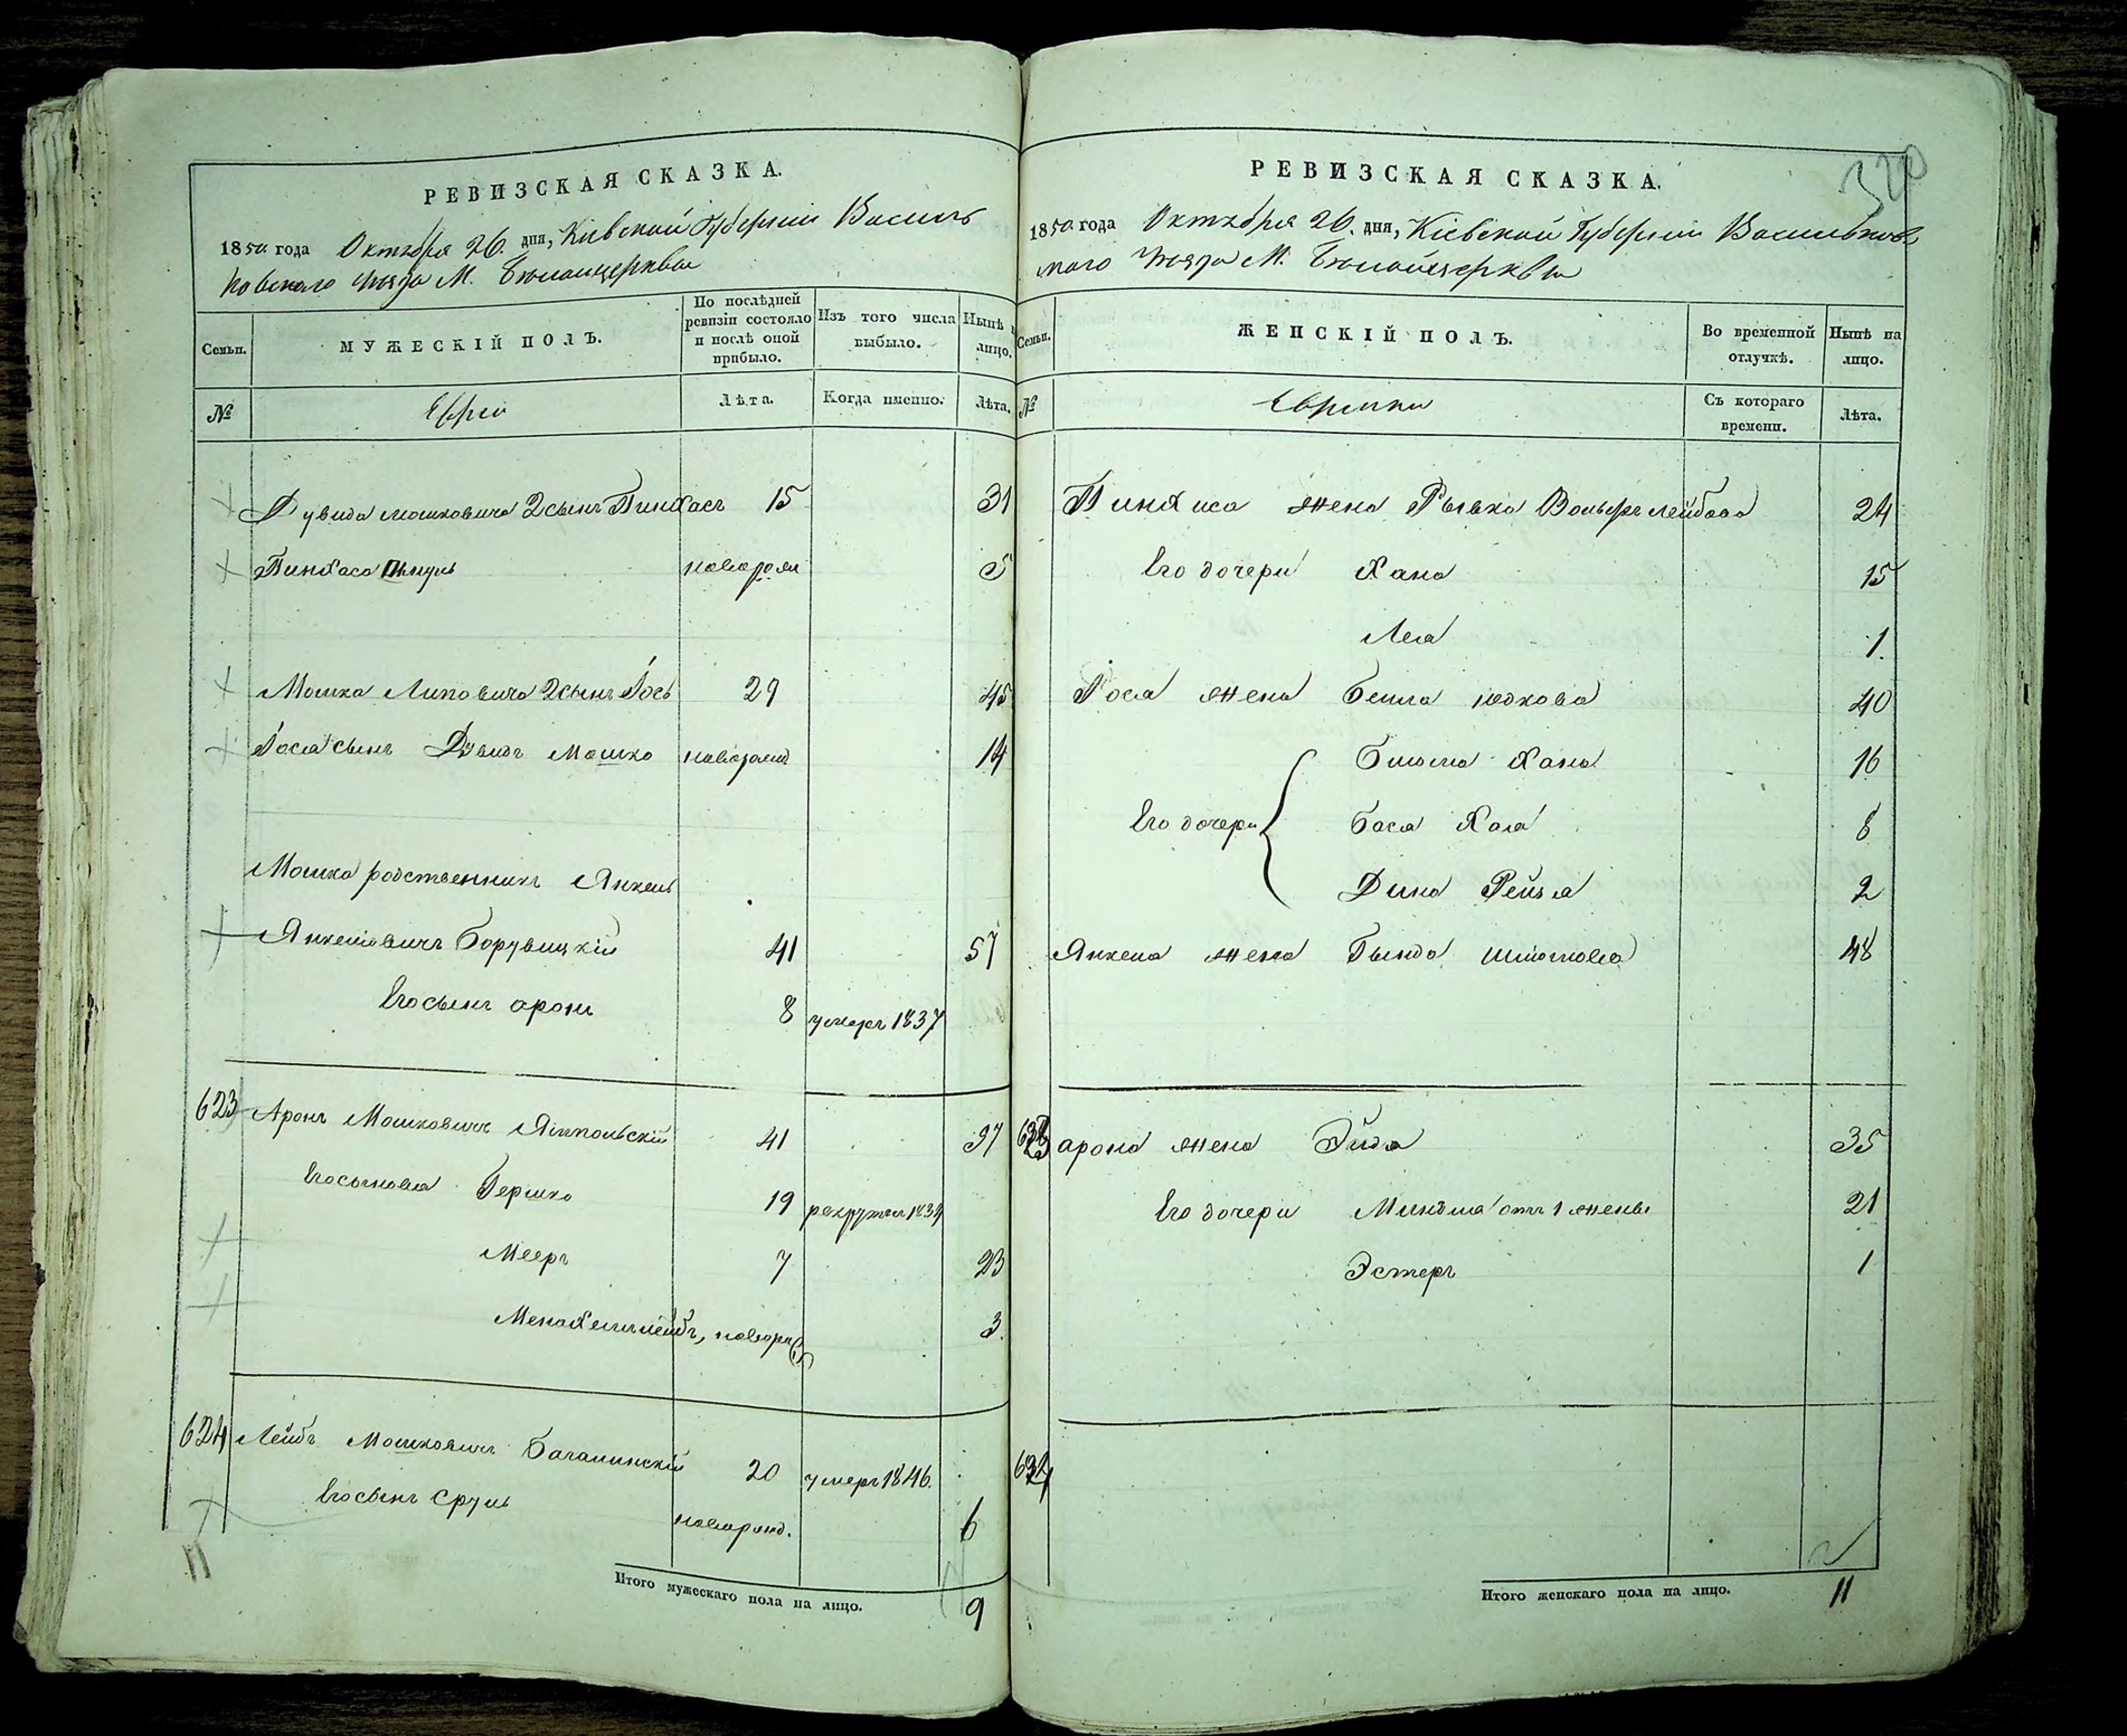 РЕВИЗСКАЯ СКАЗКА.
1850 года Октября 26. дня, Кіевской Губерніи Василь
ковского уезда М. Белойцерквы
Семьи.
МУЖЕСКІЙ ПОЛЪ.
По послѣдней ревизіи состояло и послѣ оной прибыло.
Изъ того числа выбыло.
Нынѣ лицо.
№
Евреи
Лѣта.
Когда именно.
Лѣта.
Дувида Мошковича 2 сынъ Пинхасъ 15 31
Пинхаса новорож 5
Мошка Липовича 2 сынъ Іось 29 45
Іося сынъ Дувидъ Мошко новорожд 14
Мошка родственникъ Янкель
Янкелевичъ Борувицкій 41 57
Его сынъ Аронъ 8 умеръ 1837
623 Аронъ Мошковичъ Ямпольскій 41 37
Его сыновья Гершко 19 рекрутъ 1834
Мееръ 7 23
Менахемлейбъ, новорож 3.
624 Лейбъ Мошковичъ 20 умеръ 1846.
Его сынъ Сруль новорожд. 6
11
Итого мужескаго пола на лицо. 9
320
РЕВИЗСКАЯ СКАЗКА.
1850 года Октября 26. дня, Кіевской Губерніи Васильков
ского уезда М. Белойцерквы
Семьи.
ЖЕНСКІЙ ПОЛЪ.
Во временной отлучкѣ.
Нынѣ на лицо.
№
Еврейки
Съ котораго времени.
Лѣта.
Пинхиса жена Рывка Вольфълейбова 24
Его дочери Хана 15
Лея 1.
Іося жена Бейла Юдкова 40
Хана 16
Его дочери Бася Хая 8
Дина Рейзя 2
Янкеля жена Гында 48
623 Арона жена Эйдя 35
Его дочери Миндля отъ 1 жены 21
Эстеръ 1
624
Итого женскаго пола на лицо. 11